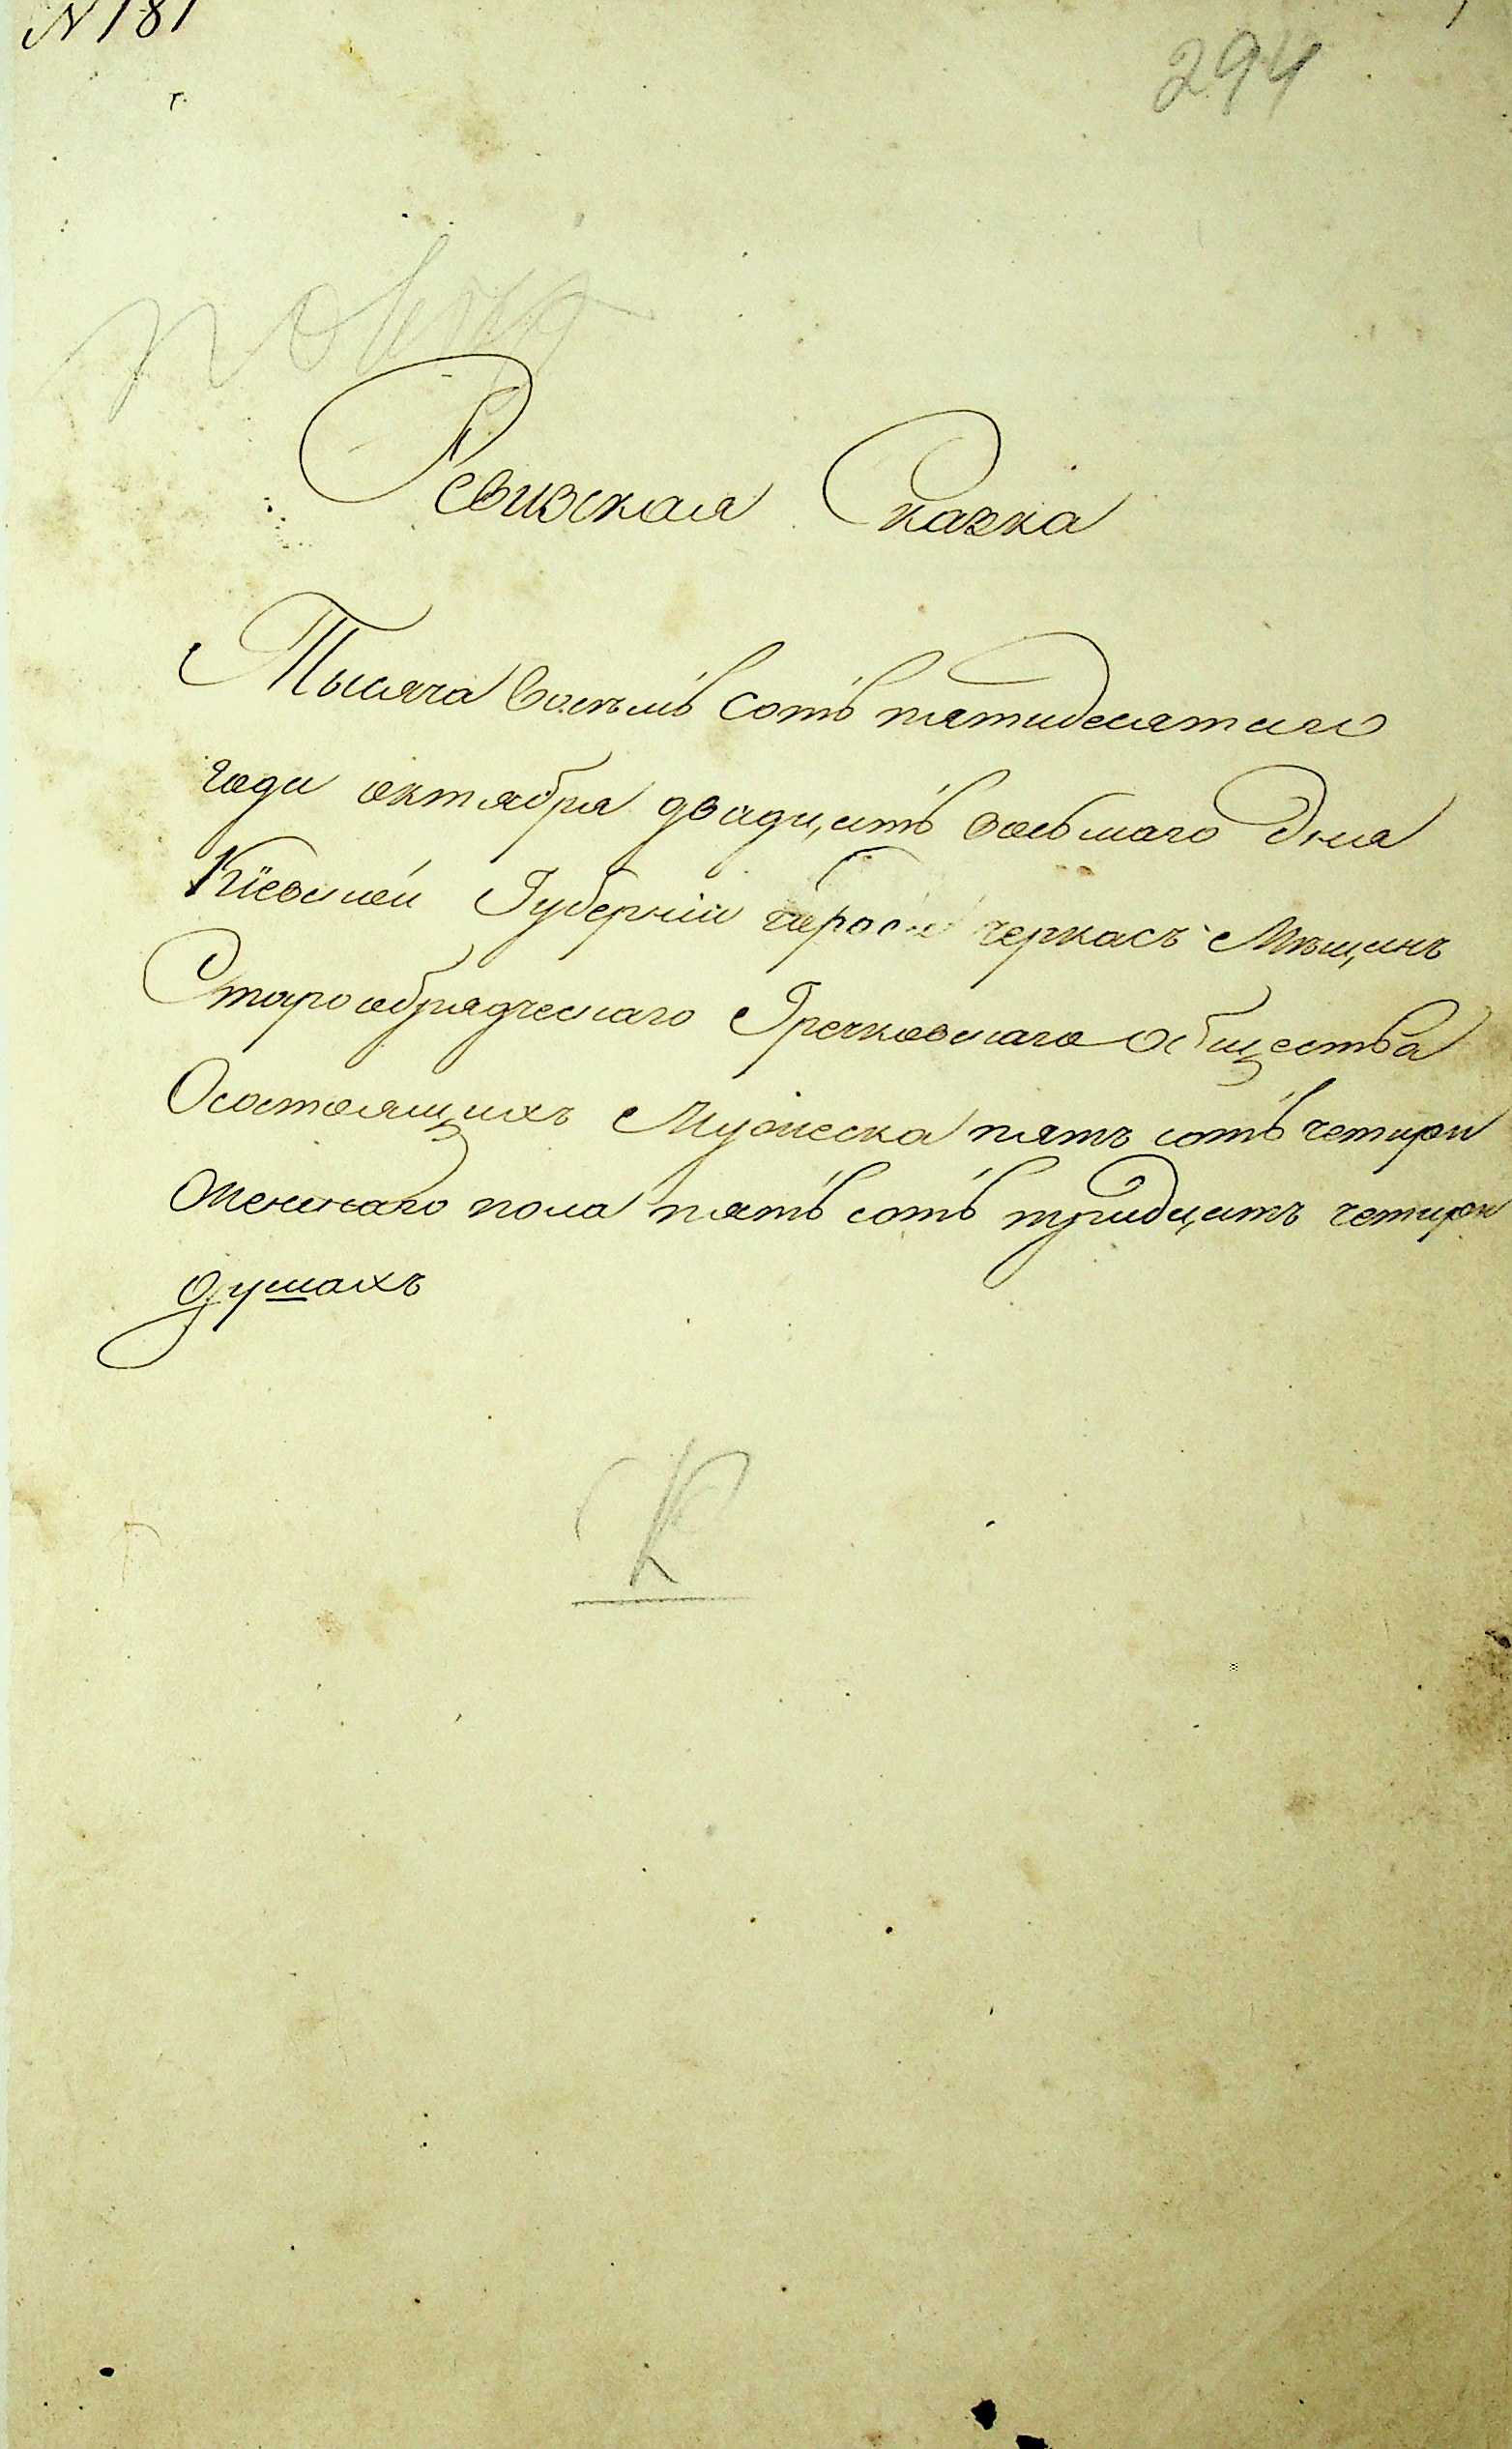 N 181
294
Ревизская Сказка
Тысяча восемь сотъ пятидесятаго
года октября двадцать восьмаго дня
Кіевской Губерніи города черкасъ Мѣщанъ
Старообрядческаго Гречковскаго общества
О состоящихъ Мужеска пять сотъ четыри
Женскаго пола пять сотъ тридцать четыри
душахъ
К